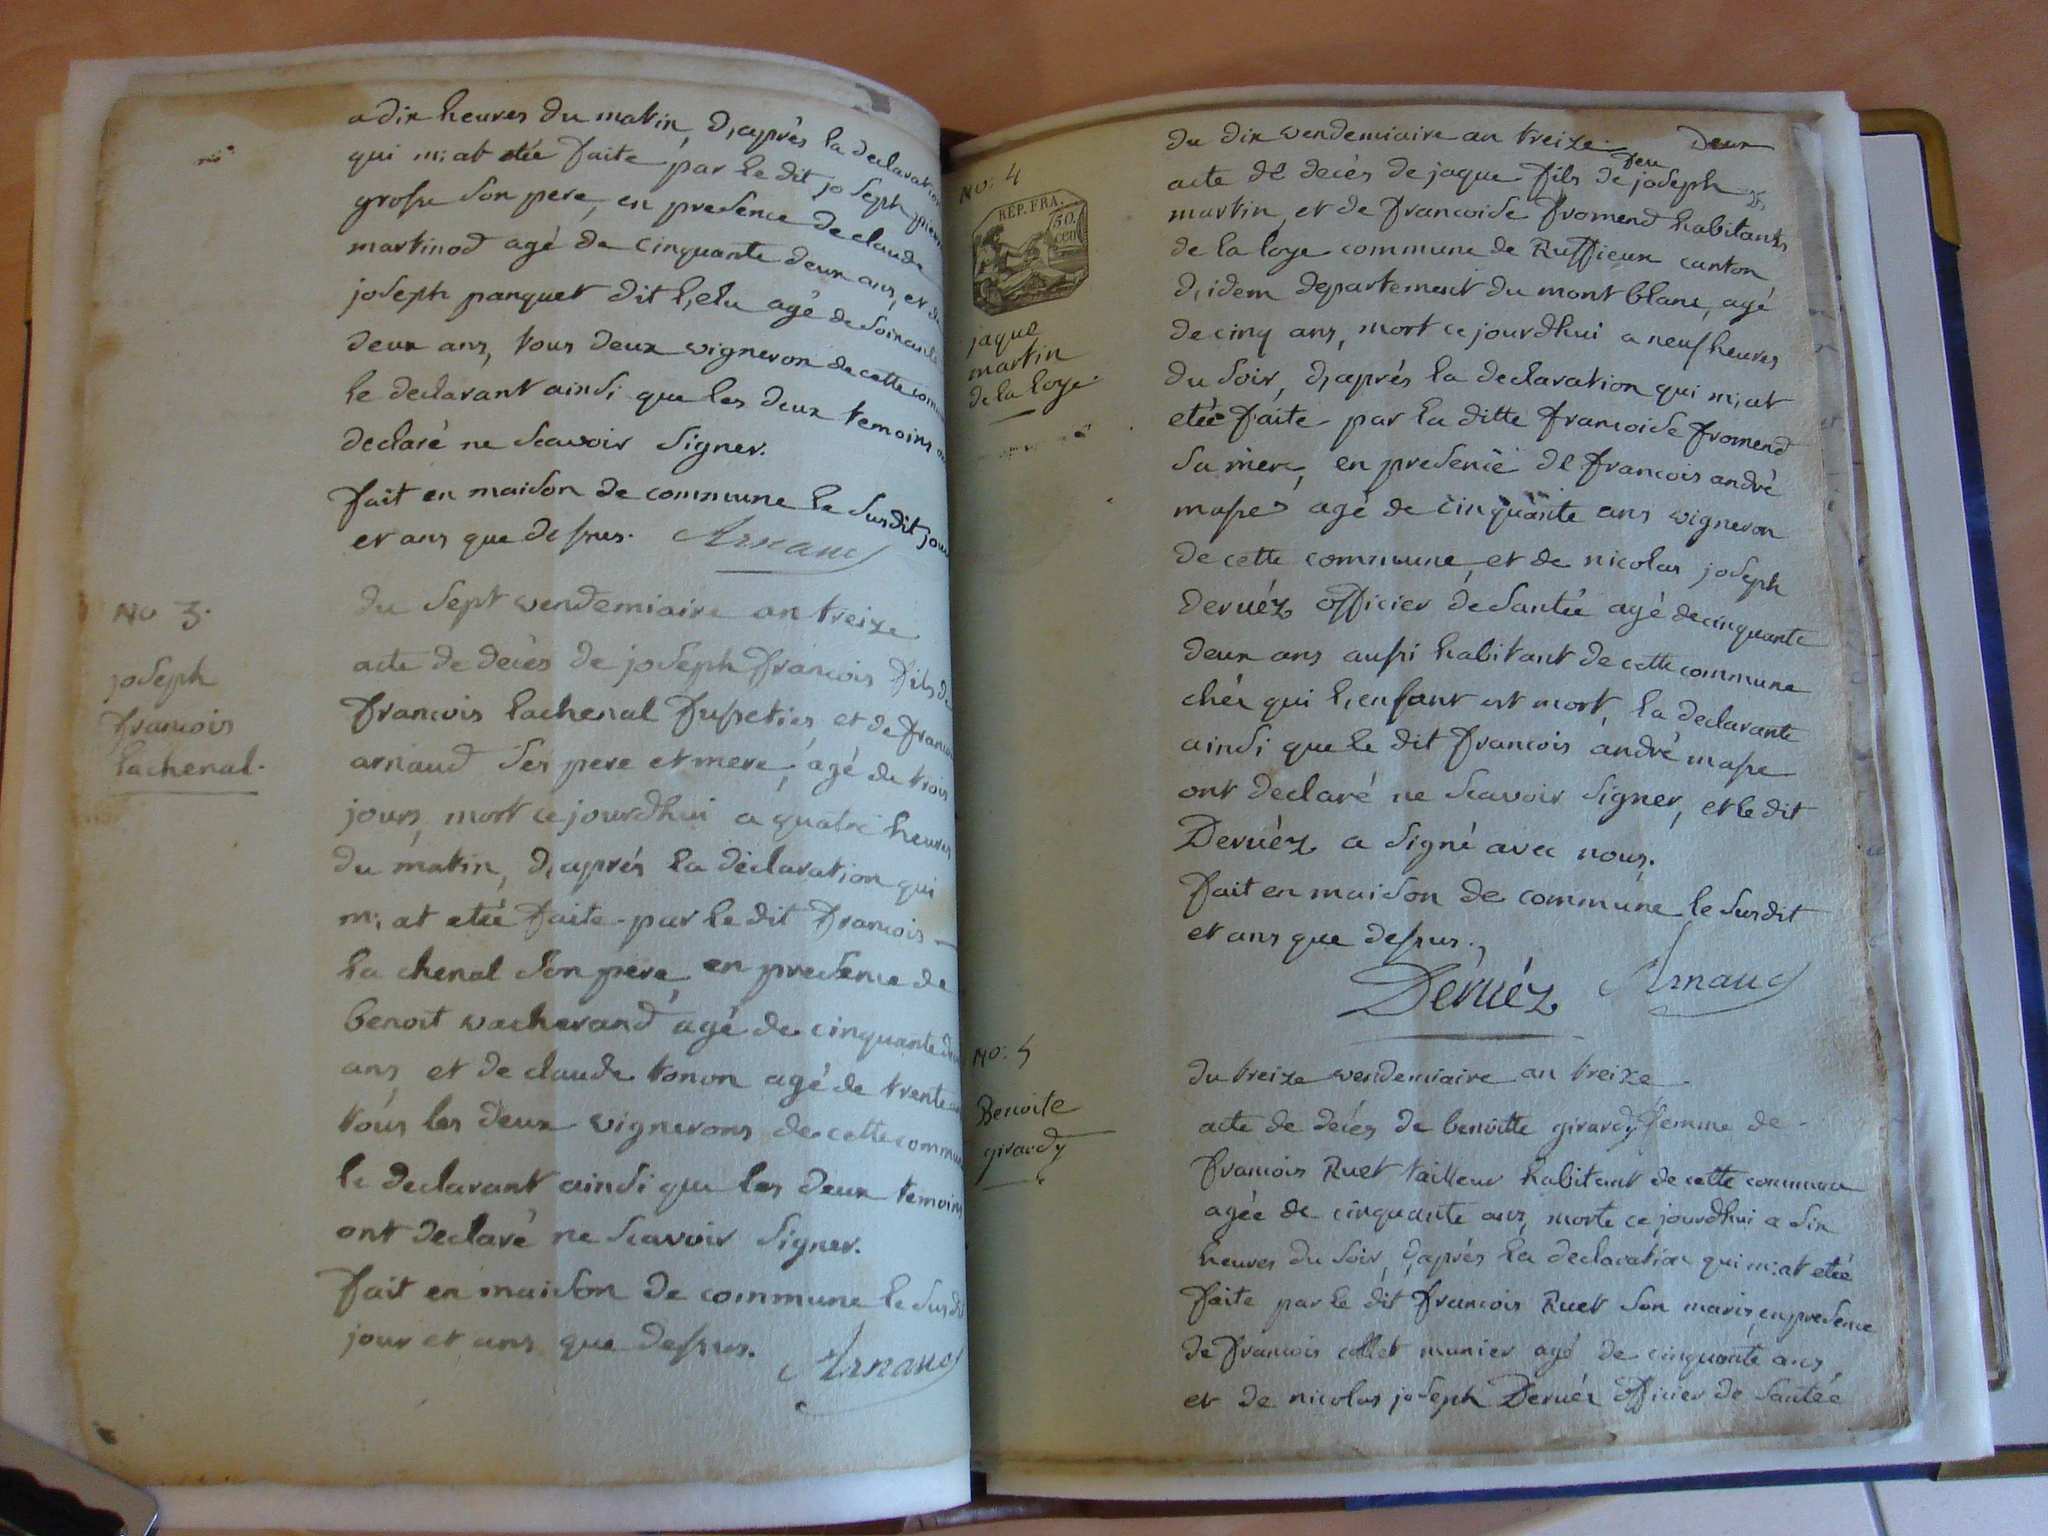 a dix heures du matin, d,après la declaration
qui m,at etée faite par le dit joseph pierre
grosse son pere, en presence de claude
martinod agé de cinquante deux ans, et de
joseph panquet dit l,elu agé de soixante
deux ans, tous deux vigneron de cette commune
le declarant ainsi que les deux temoins ont
declaré ne scavoir signer.
fait en maison de commune le susdit jour
et ans que dessus. Arnaud
No 3.
joseph
francois
lachenal.
du sept vendemiaire an treize
acte de decès de joseph francois fils de
francois lachenal fusetier, et de francoise
arnaud ses pere et mere, agé de trois
jours, mort ce jourdhui a quatre heures
du matin, d,après la declaration qui
m,at etée faite par le dit francois
lachenal son pere, en presence de
benoit vacherand agé de cinquante deux
ans, et de claude tonon agé de trente ans
tous les deux vignerons de cette commune
le declarant ainsi que les deux temoins
ont declaré ne scavoir signer.
fait en maison de commune le susdit
jour et ans que dessus.
Arnaud
No: 4
REP. FRA.
50.
cen
jaque
martin
de la loye.
du dix vendemiaire an treize. Deux
acte de decès de jaque fils de feu joseph
martin, et de francoise fromend habitants
de la loye commune de Ruffieux canton
d,idem departement du mont blanc, agé
de cinq ans, mort ce jourdhui a neuf heures
du soir, d,après la declaration qui m,at
etée faite par la ditte francoise fromend
sa mere, en presence de francois andré
masse agé de cinquante ans vigneron
de cette commune, et de nicolas joseph
Deruéz officier de santée agé de cinquante
deux ans aussi habitant de cette commune
chéz qui l,enfant est mort, la declarante
ainsi que le dit francois andré masse
ont declaré ne scavoir signer, et le dit
Deruéz a signé avec nous.
fait en maison de commune le susdit
et ans que dessus.
Deruéz Arnaud
No: 5
Benoite
girardy
du treize vendemiaire an treize.
acte de decès de benoitte girardy femme de
francois Ruet tailleur habitant de cette commune
agée de cinquante ans, morte ce jourdhui a six
heures du soir, d,après la declaration qui m,at etée
faite par le dit francois Ruet son maris, en presence
de francois collet munier agé de cinquante ans,
et de nicolas joseph Deruéz officier de santée